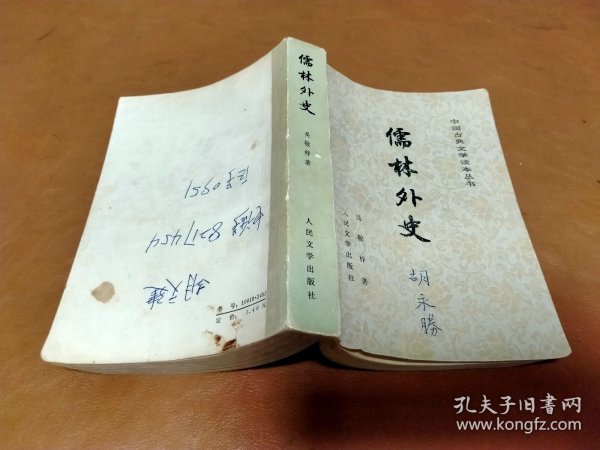 中国古典文学读本丛书
儒林外史
吴敬梓 著
人民文学出版社
胡永勝
儒林外史
吴敬梓著
人民文学出版社
0951
8217454
书号:10019·2462
定价:1.40元
孔夫子旧书网
www.kongfz.com